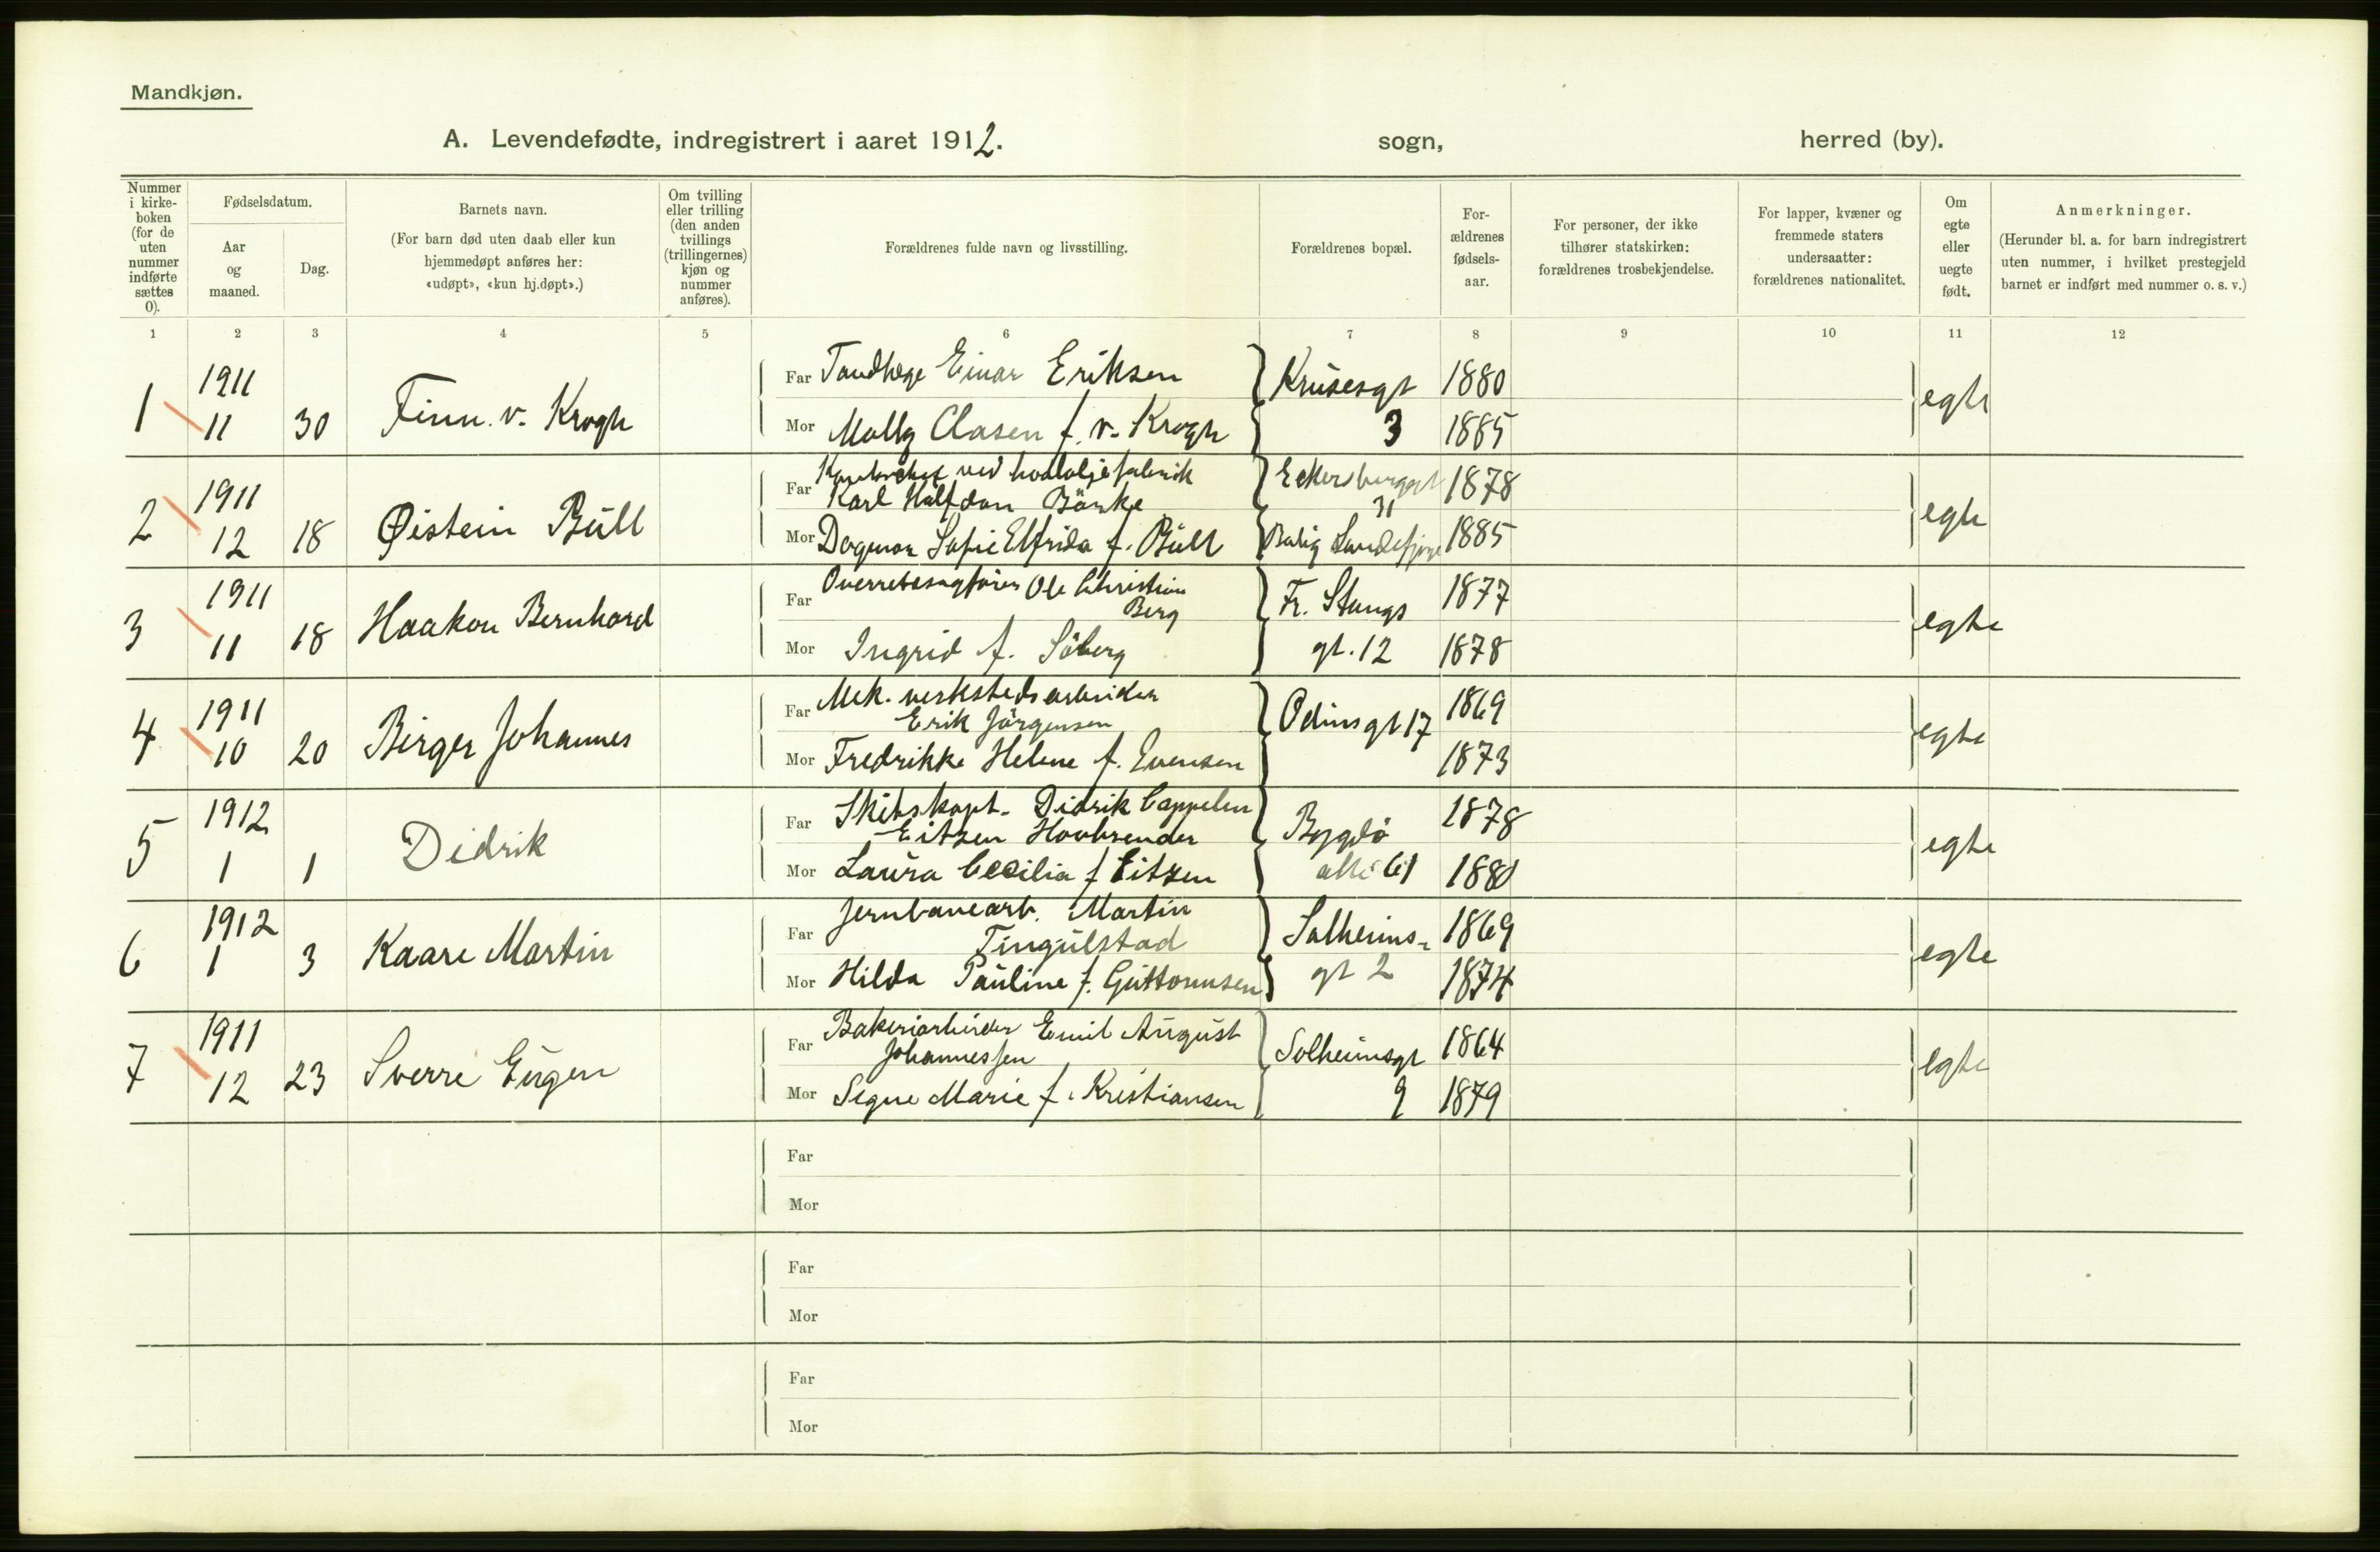 Mandkjøn.
A. Levendefødte, indregistrert i aaret 1912. sogn, herred (by).
Nummer i kirke-boken (for de uten nummer indførte sættes 0).
Fødselsdatum.
Aar og maaned.
Dag.
Barnets navn.
(For barn død uten daab eller kun hjemmedøpt anføres her: «udøpt», «kun hj.døpt».)
Om tvilling eller trilling (den anden tvillings (trillingernes) kjøn og nummer anføres).
Forældrenes fulde navn og livsstilling.
Forældrenes bopæl.
For-ældrenes fødsels-aar.
For personer, der ikke tilhører statskirken: forældrenes trosbekjendelse.
For lapper, kvæner og fremmede staters undersaatter: forældrenes nationalitet.
Om egte eller uegte født.
Anmerkninger.
(Herunder bl. a. for barn indregistrert uten nummer, i hvilket prestegjeld barnet er indført med nummer o. s. v.)
1 2 3 4 5 6 7 8 9 10 11 12
1 1911 11 30 Finn v. Krogh
Far Tandlæge Einar Eriksen Krusesgt 1880 egte
Mor Molly Clasen f. v. Krogh 3 1885
2 1911 12 18 Øistein Büll
Far ved hvalolje fabrik
Karl Halfdan Eckersbergsgt 31 1878 egte
Mor Dagmar Sofie Elfrida f. Büll Bolig 1885
3 1911 11 18 Haakon Bernhard
Far Overretssagfører Ole Christian
Berg Fr. Stangs 1877 egte
Mor Ingrid f. Söberg gt. 12 1878
4 1911 10 20 Birger Johannes
Far Mek. verkstedsarbeider
Erik Jörgensen Odinsgt 17 1869 egte
Mor Fredrikke Helene f. Evensen 1873
5 1912 1 1 Didrik
Far Skibskapt. Didrik Cappelen
Eitzen Bygdö 1878 egte
Mor Laura Cecilia f Eitzen alle 61 1880
6 1912 1 3 Kaare Martin
Far Jernbanearb. Martin
Tingulstad Solheims- 1869 egte
Mor Hilda Pauline f. Guttormsen gt 2 1874
7 1911 12 23 Sverre Eugen
Far Bakeriarbeider Emil August
Johannessen Solheimsgt 1864 egte
Mor Signe Marie f. Kristiansen 9 1879
Far
Mor
Far
Mor
Far
Mor